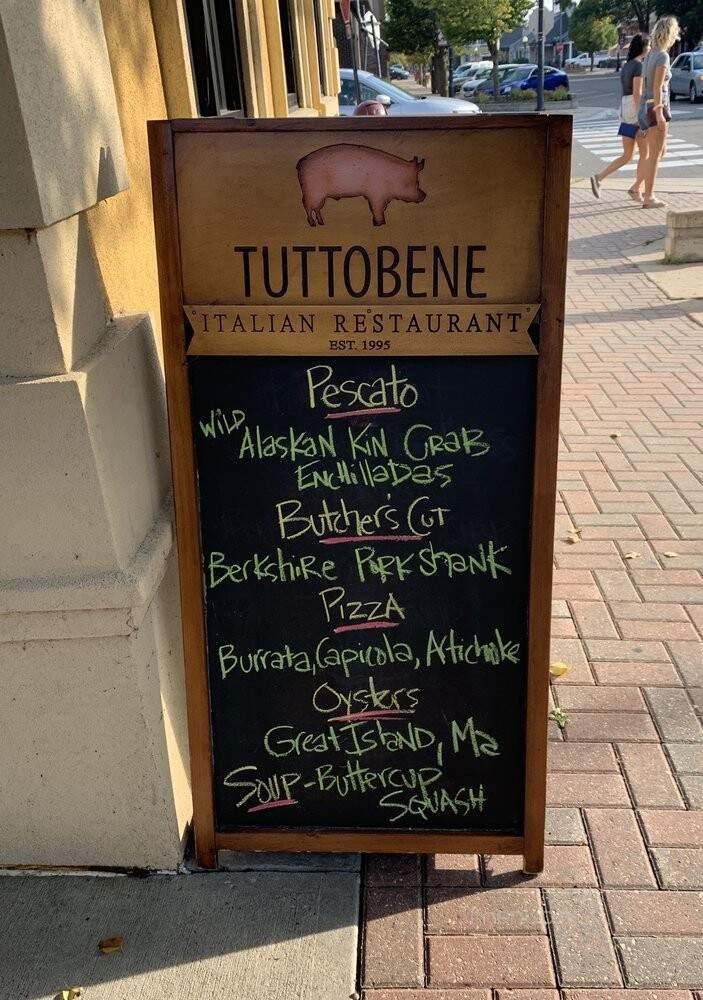 TUTTOBENE
ITALIAN RESTAURANT
EST. 1995
Pescato
WILD Alaskan Kin Crab
Enchilladas
Butcher's Cut
Berkshire Pork Shank
Pizza
Burrata, Capicola, Artichoke
Oysters
Great Island, Ma
Soup - Buttercup
Squash